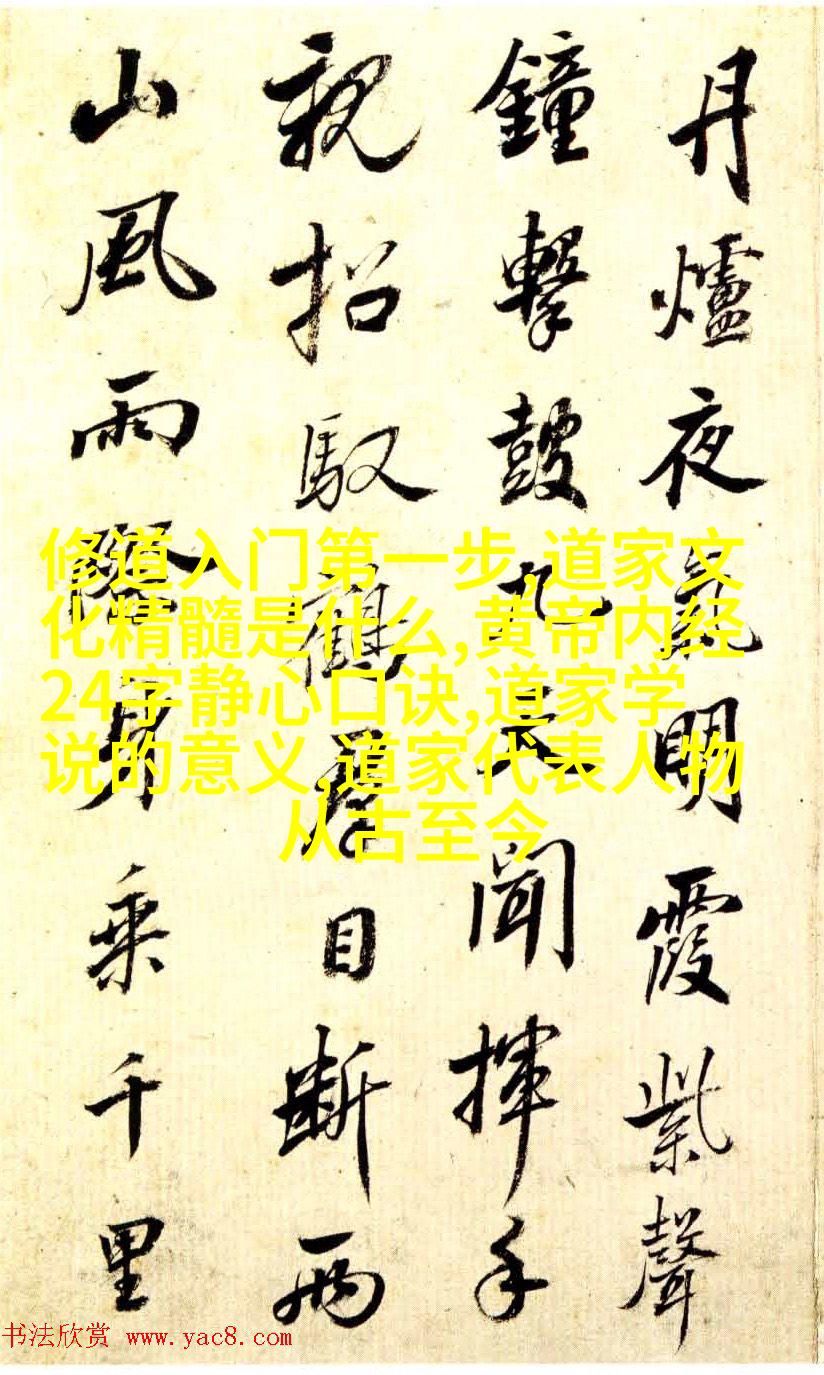 丹爐夜氣明霞紫聲
鐘擊鼓九天聞揮手
親招馭鶴君目斷兩
山風雨隨身乘千里
修道入门第一步,道家文
化精髓是什么,黄帝内经
24字静心口诀,道家学
说的意义,道家代表人物
从古至今
书法欣赏 www.yac8.com